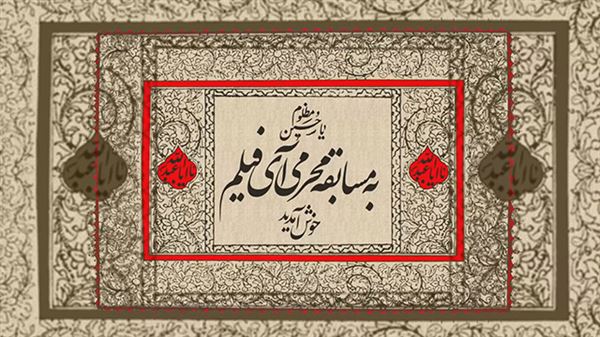 یا حسین مظلوم
به مسابقه محرمی آی فیلم
خوش آمدید
یا اباعبدالله
یا اباعبدالله
یا اباعبدالله
یا اباعبدالله